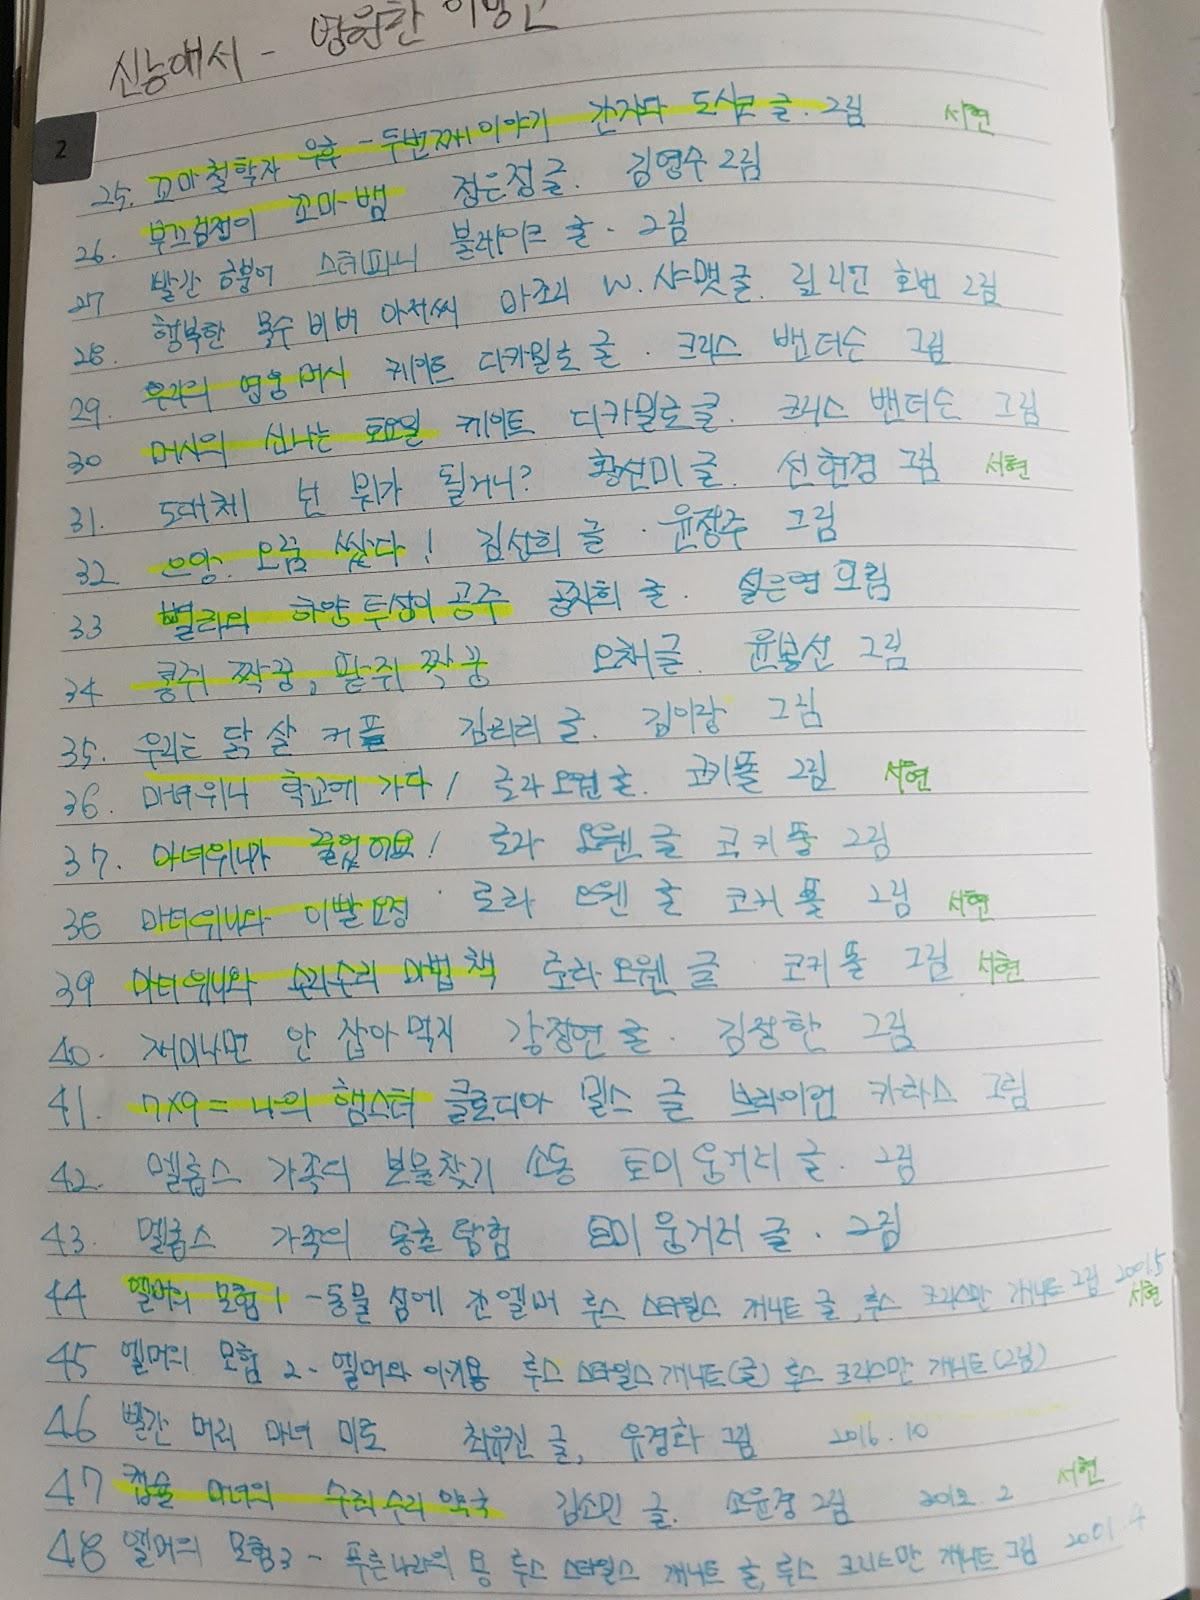 신능애서 - 영원한 이방인
2
25. 꼬마 철학자 우후 - 두번째 이야기 간자와 도시코 글. 그림 서현
26. 부끄럼쟁이 꼬마 뱀 정은정 글. 김영수 그림
27 빨간 금붕어 스테파니 블레이크 글. 그림
28. 행복한 목수 비버 아저씨 마조리 W. 샤맷 글. 릴리언 호번 그림
29. 우리의 영웅 머시 케이트 디카밀로 글. 크리스 밴 더슨 그림
30 머시의 신나는 토요일 케이트 디카밀로 글. 크리스 밴 더슨 그림
31. 도대체 넌 뭐가 될거니? 황선미 글. 선현경 그림 서현
32 으앙. 오줌 쌌다! 김선희 글. 윤정주 그림
33 벨라의 하얀 투성이 공주 공지희 글. 설은영 그림
34 콩쥐 짝꿍, 팥쥐 짝꿍 오채 글. 윤봉선 그림
35. 우리는 닭살 커플 김리리 글. 김이랑 그림
36. 마녀위니 학교에 가다! 로라 오웬 글. 코키 폴 그림 서현
37. 마녀위니가 졸았어요! 로라 오웬 글 코키 폴 그림
38 마녀위니와 이빨요정 로라 오웬 글 코키 폴 그림 서현
39 마녀위니와 수리수리 마법 책 로라 오웬 글 코키 폴 그림 서현
40. 재미나면 안 잡아먹지 강정연 글. 김정한 그림
41. 7x9 = 나의 햄스터 클로디아 밀스 글 브라이언 카라스 그림
42. 멜롭스 가족의 보물찾기 소동 토미 웅거러 글. 그림
43. 멜롭스 가족의 동굴 탐험 토미 웅거러 글. 그림
44 엘머의 모험 1 - 동물 섬에 간 엘머 루스 스타일스 개니트 글, 루스 크리스만 개니트 그림 2001.5 서현
45 엘머의 모험 2 - 엘머와 아기용 루스 스타일스 개니트(글) 루스 크리스만 개니트(그림)
46 빨간 머리 마녀 미로 최유진 글, 유경화 그림 2016.10
47 캡슐 마녀의 수리수리 약국 김소민 글. 소윤경 그림 2012.2 서현
48 엘머의 모험3 - 푸른나라의 용 루스 스타일스 개니트 글, 루스 크리스만 개니트 그림 2001.4